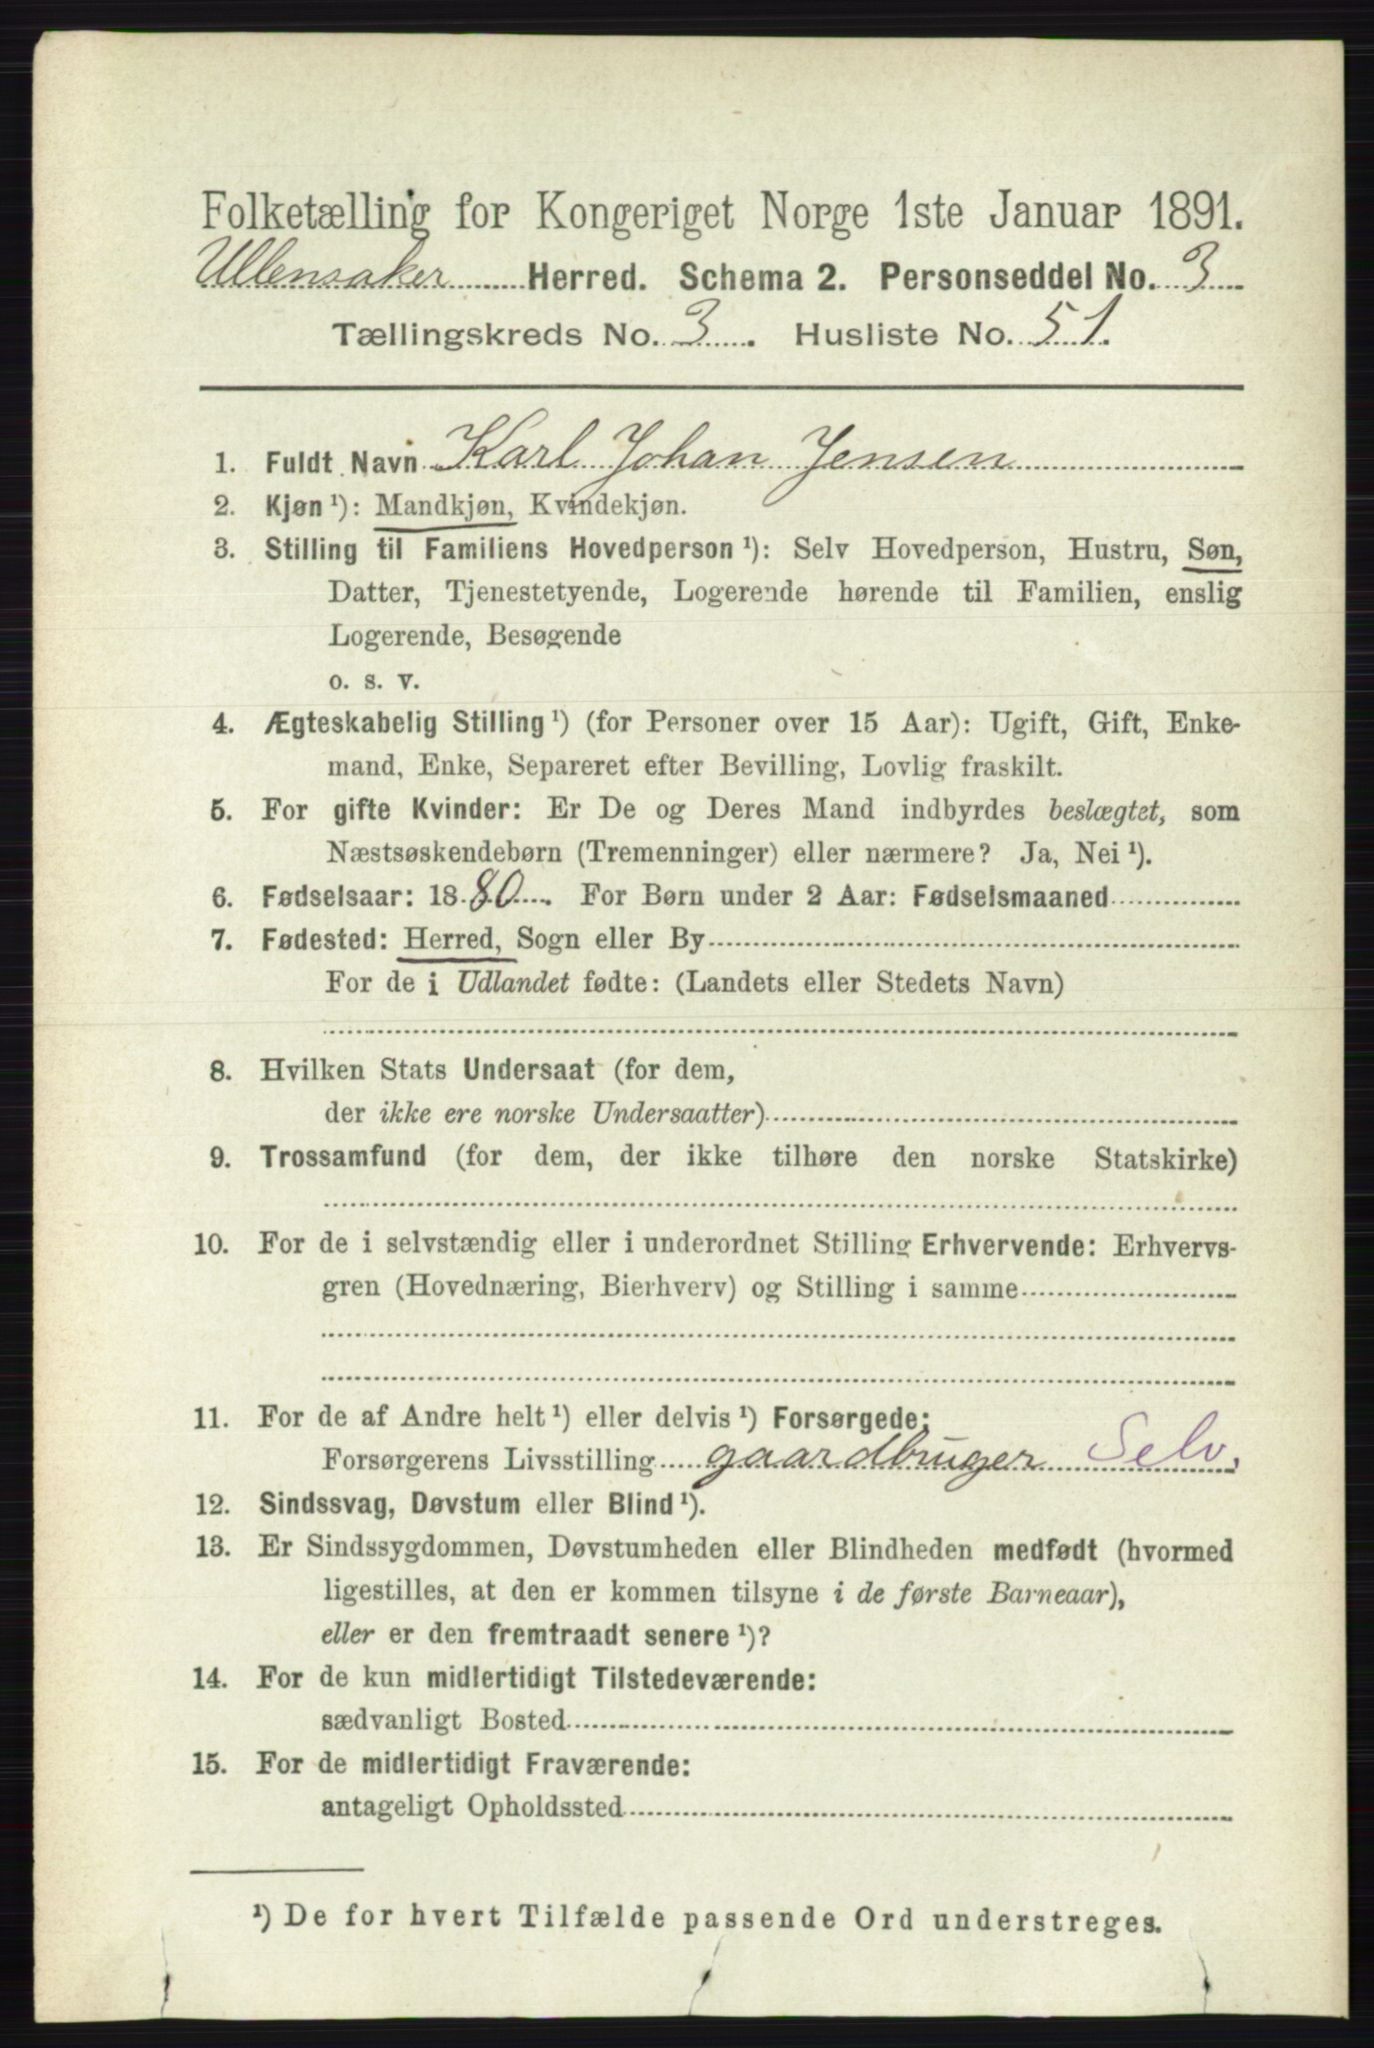 Folketælling for Kongeriget Norge 1ste Januar 1891.
Ullensaker Herred. Schema 2. Personseddel No. 3
Tællingskreds No. 3. Husliste No. 51.
1. Fuldt Navn Karl Johan Jensen
2. Kjøn ¹): Mandkjøn, Kvindekjøn.
3. Stilling til Familiens Hovedperson ¹): Selv Hovedperson, Hustru, Søn,
Datter, Tjenestetyende, Logerende hørende til Familien, enslig
Logerende, Besøgende
o. s. v.
4. Ægteskabelig Stilling ¹) (for Personer over 15 Aar): Ugift, Gift, Enke-
mand, Enke, Separeret efter Bevilling, Lovlig fraskilt.
5. For gifte Kvinder: Er De og Deres Mand indbyrdes beslægtet, som
Næstsøskendebørn (Tremenninger) eller nærmere? Ja, Nei ¹).
6. Fødselsaar: 1880. For Børn under 2 Aar: Fødselsmaaned
7. Fødested: Herred, Sogn eller By
For de i Udlandet fødte: (Landets eller Stedets Navn)
8. Hvilken Stats Undersaat (for dem,
der ikke ere norske Undersaatter)
9. Trossamfund (for dem, der ikke tilhøre den norske Statskirke)
10. For de i selvstændig eller i underordnet Stilling Erhvervende: Erhvervs-
gren (Hovednæring, Bierhverv) og Stilling i samme
11. For de af Andre helt ¹) eller delvis ¹) Forsørgede:
Forsørgerens Livsstilling gaardbruger Selv.
12. Sindssvag, Døvstum eller Blind ¹).
13. Er Sindssygdommen, Døvstumheden eller Blindheden medfødt (hvormed
ligestilles, at den er kommen tilsyne i de første Barneaar),
eller er den fremtraadt senere ¹)?
14. For de kun midlertidigt Tilstedeværende:
sædvanligt Bosted
15. For de midlertidigt Fraværende:
antageligt Opholdssted
¹) De for hvert Tilfælde passende Ord understreges.